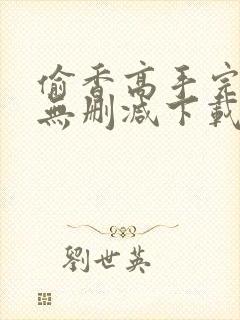 偷香高手完
無刪減下載
劉世英